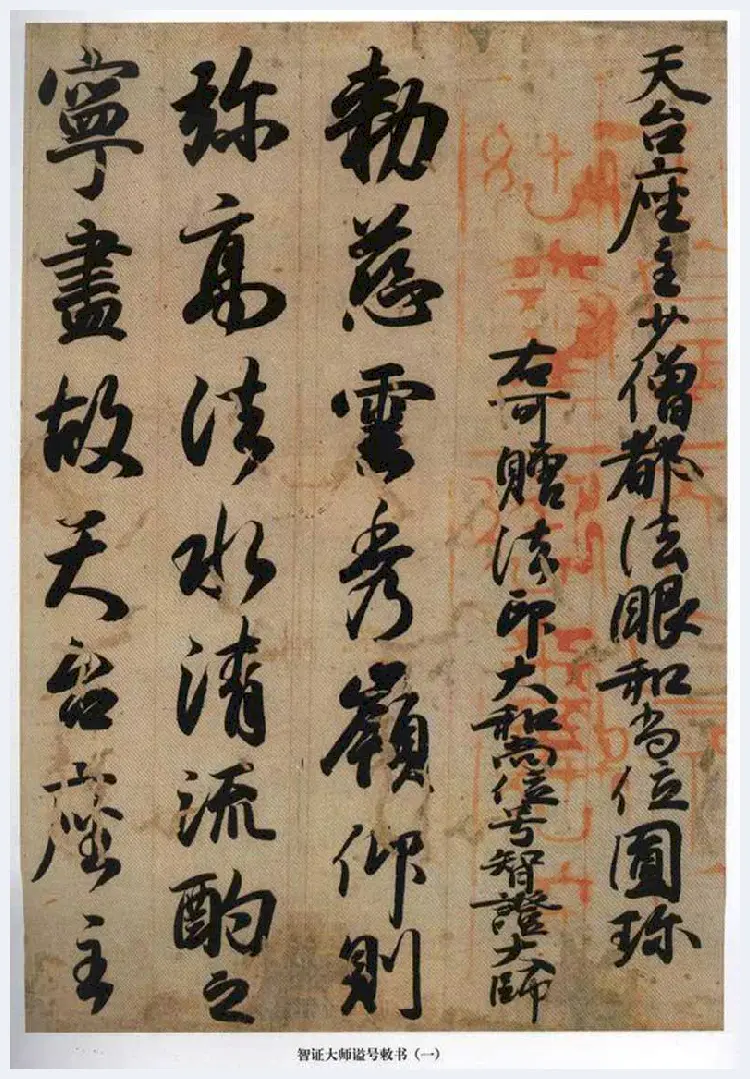 天台座主少僧都法眼和尚位圓珎
右可贈法印大和尚位号智證大師
勅慈雲秀嶺仰則
弥高法水清流酌之
寧盡故天台座主
智证大师谥号敕书（一）